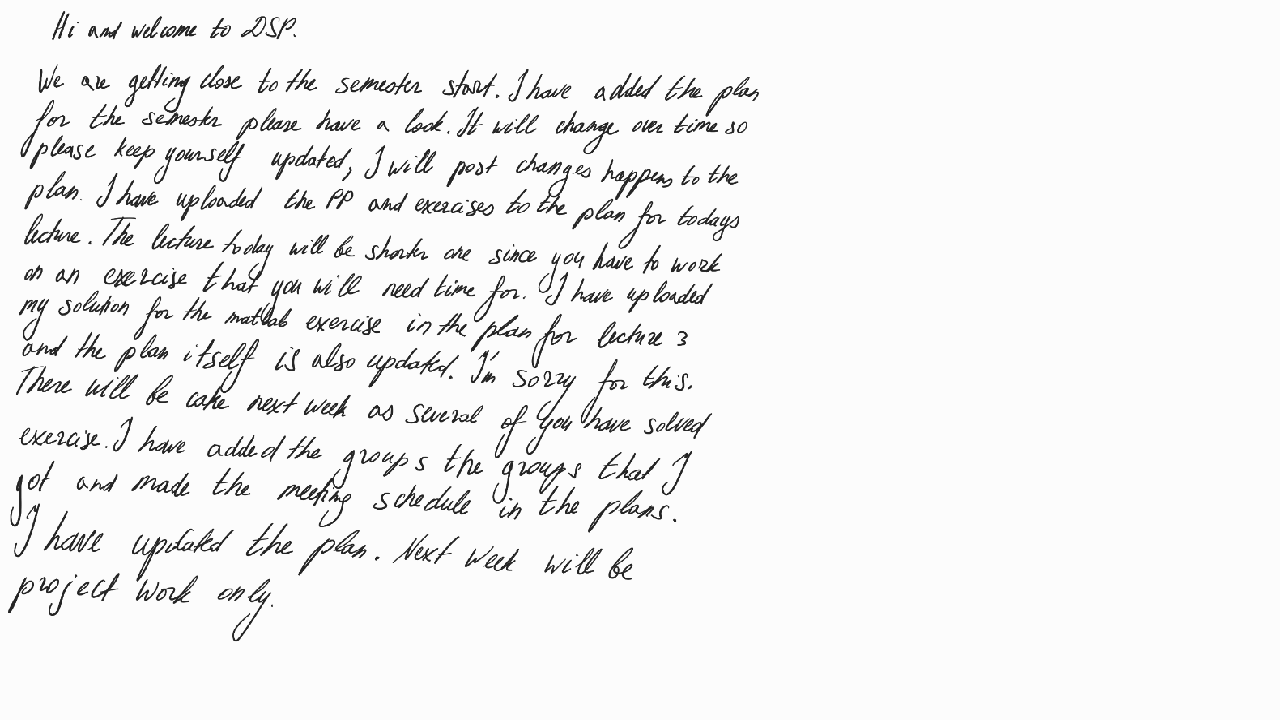 Hi and welcome to DSP.
We are getting close to the semester start. I have added the plan
for the semester please have a look. It will change over time so
please keep yourself updated, I will post changes happens to the
plan. I have uploaded the PP and exercises to the plan for todays
lecture. The lecture today will be shorter one since you have to work
on an exercise that you will need time for. I have uploaded
my solution for the matlab exercise in the plan for lecture 3
and the plan itself is also updated. I'm sorry for this.
There will be cake next week as several of you have solved
exercise. I have added the groups the groups that I
got and made the meeting schedule in the plans.
I have updated the plan. Next week will be
project work only.